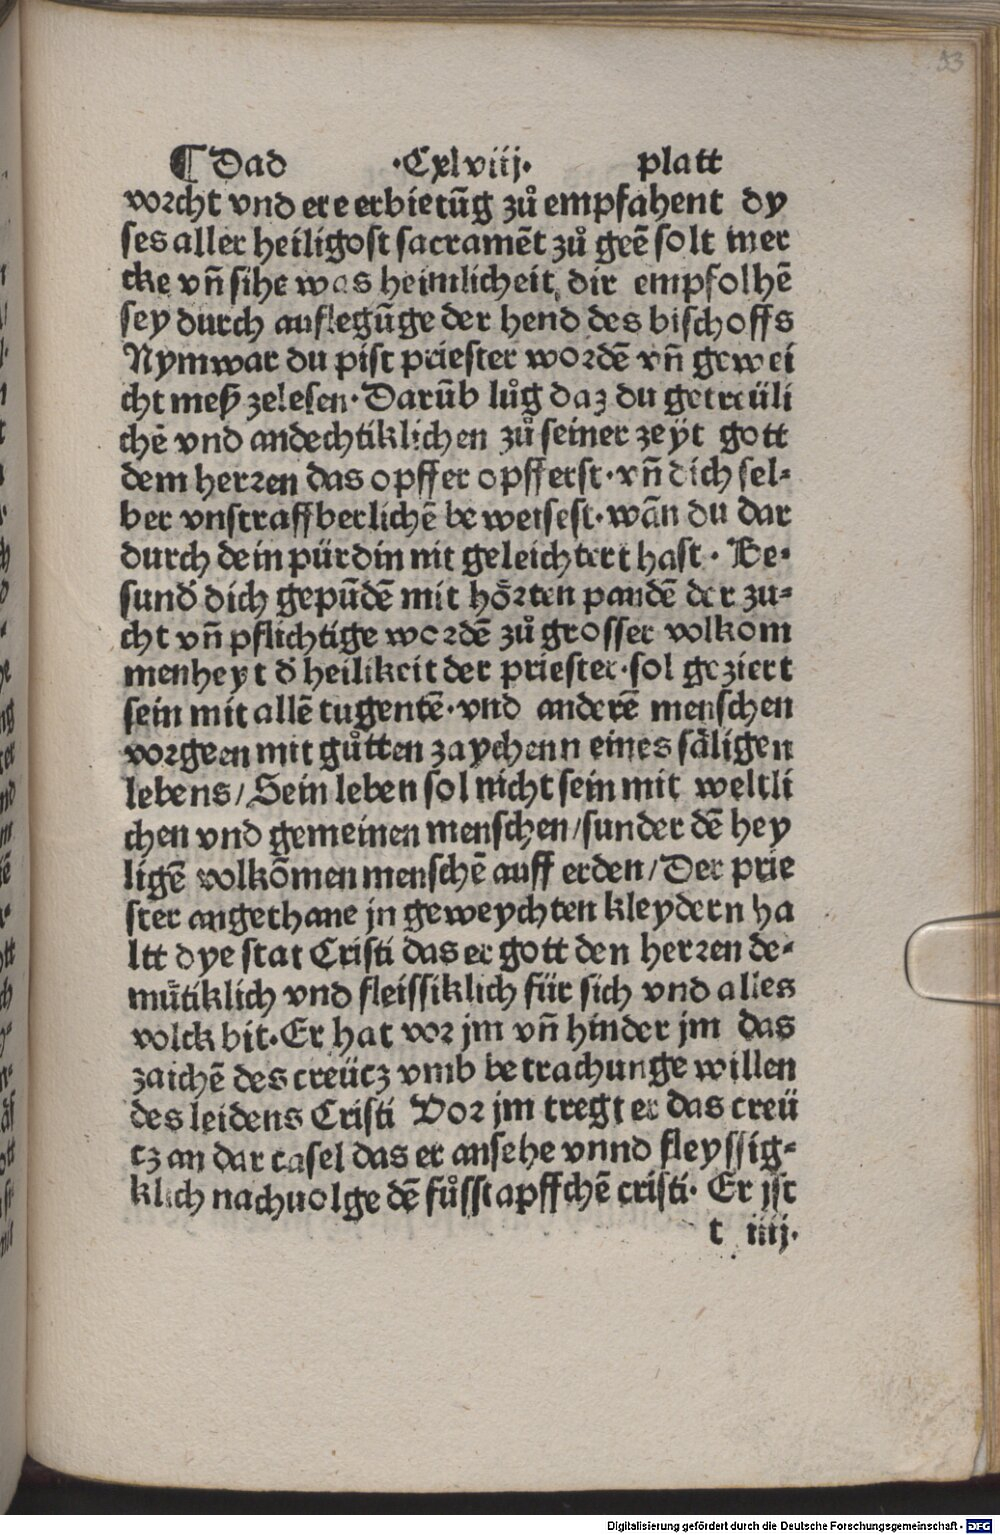 93
¶ Dad ·Cxlviij· platt
vorcht vnd ere erbietūg zů empfahent dy
ses aller heiligost sacramēt zů geē solt mer
cke vñ sihe was heimlicheit dir empfolhē
sey durch auflegūge der hend des bischoffs
Nymwar du pist priester wordē vñ gewei
cht meß zelesen· Darūb lůg daz du getreüli
chē vnd andechtiklichen zů seiner zeyt gott
dem herren das opffer opfferst· vñ dich sel-
ber vnstraffberlichē beweisest· wān du dar
durch dein pürdin nit geleichtert hast· Be-
sund̕ dich gepūdē mit hörten pandē der zu-
cht vñ pflichtige wordē zů grosser volkom
menheyt d̕ heilikeit der priester· sol geziert
sein mit allē tugentē· vnd anderē menschen
vorgeen mit gůtten zaychenn eines säligen
lebens/ Sein leben sol nicht sein mit weltli
chen vnd gemeinen menschen/ sunder dē hey
ligē volkōmen menschē auff erden/ Der prie
ster angethane jn geweychten kleydern ha
ltt dye stat Cristi das er gott den herren de-
mütiklich vnd fleissiklich für sich vnd alles
volck bit· Er hat vor jm vñ hinder jm das
zaichē des creütz vmb betrachunge willen
des leidens Cristi Vor jm tregt er das creü
tz an dar casel das er ansehe vnnd fleyssig-
klich nachuolge dē fůsstapffchē cristi· Er jst
t iiij·
Digitalisierung gefördert durch die Deutsche Forschungsgemeinschaft - DFG